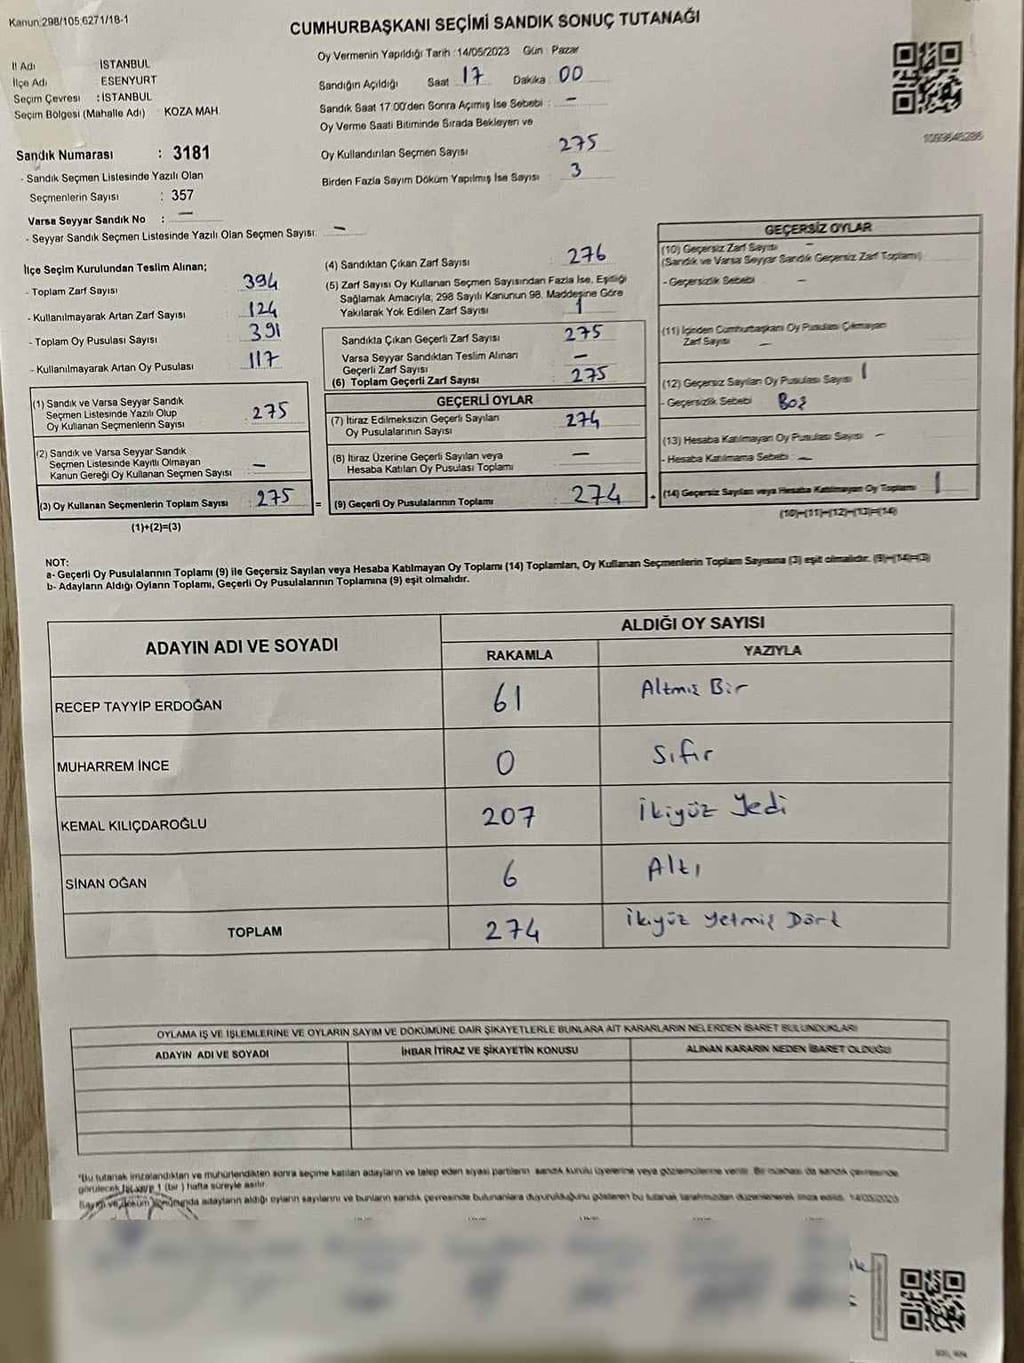 Kanun:298/105;6271/18-1
CUMHURBAŞKANI SEÇİMİ SANDIK SONUÇ TUTANAĞI
Oy Vermenin Yapıldığı Tarih :14/05/2023 Gün : Pazar
İl Adı : İSTANBUL
İlçe Adı : ESENYURT
Seçim Çevresi : İSTANBUL
Seçim Bölgesi (Mahalle Adı) KOZA MAH.
Sandığın Açıldığı Saat 17 Dakika 00
Sandık Saat 17:00'den Sonra Açımış İse Sebebi : —
Oy Verme Saati Bitiminde Sırada Bekleyen ve
Oy Kullandırılan Seçmen Sayısı 275
Birden Fazla Sayım Döküm Yapılmış İse Sayısı : 3
Sandık Numarası : 3181
- Sandık Seçmen Listesinde Yazılı Olan
Seçmenlerin Sayısı : 357
Varsa Seyyar Sandık No : —
- Seyyar Sandık Seçmen Listesinde Yazılı Olan Seçmen Sayısı: —
İlçe Seçim Kurulundan Teslim Alınan;
- Toplam Zarf Sayısı 394
- Kullanılmayarak Artan Zarf Sayısı 124
- Toplam Oy Pusulası Sayısı 391
- Kullanılmayarak Artan Oy Pusulası 117
(1) Sandık ve Varsa Seyyar Sandık
Seçmen Listesinde Yazılı Olup
Oy Kullanan Seçmenlerin Sayısı 275
(2) Sandık ve Varsa Seyyar Sandık
Seçmen Listesinde Kayıtlı Olmayan
Kanun Gereği Oy Kullanan Seçmen Sayısı —
(3) Oy Kullanan Seçmenlerin Toplam Sayısı : 275 =
(1)+(2)=(3)
(4) Sandıktan Çıkan Zarf Sayısı 276
(5) Zarf Sayısı Oy Kullanan Seçmen Sayısından Fazla İse, Eşitliği
Sağlamak Amacıyla; 298 Sayılı Kanunun 98. Maddesine Göre
Yakılarak Yok Edilen Zarf Sayısı 1
Sandıkta Çıkan Geçerli Zarf Sayısı 275
Varsa Seyyar Sandıktan Teslim Alınan
Geçerli Zarf Sayısı —
(6) Toplam Geçerli Zarf Sayısı : 275
GEÇERLİ OYLAR
(7) İtiraz Edilmeksizin Geçerli Sayılan
Oy Pusulalarının Sayısı 274
(8) İtiraz Üzerine Geçerli Sayılan veya
Hesaba Katılan Oy Pusulası Toplamı —
(9) Geçerli Oy Pusulalarının Toplamı : 274 +
GEÇERSİZ OYLAR
(10) Geçersiz Zarf Sayısı —
(Sandık ve Varsa Seyyar Sandık Geçersiz Zarf Toplamı)
- Geçersizlik Sebebi —
(11) İçinden Cumhurbaşkanı Oy Pusulası Çıkmayan
Zarf Sayısı —
(12) Geçersiz Sayılan Oy Pusulası Sayısı 1
- Geçersizlik Sebebi Boş
(13) Hesaba Katılmayan Oy Pusulası Sayısı —
- Hesaba Katılmama Sebebi —
(14) Geçersiz Sayılan veya Hesaba Katılmayan Oy Toplamı 1
(10)+(11)+(12)+(13)=(14)
NOT:
a- Geçerli Oy Pusulalarının Toplamı (9) ile Geçersiz Sayılan veya Hesaba Katılmayan Oy Toplamı (14) Toplamları, Oy Kullanan Seçmenlerin Toplam Sayısına (3) eşit olmalıdır. (9)+(14)=(3)
b- Adayların Aldığı Oyların Toplamı, Geçerli Oy Pusulalarının Toplamına (9) eşit olmalıdır.
ADAYIN ADI VE SOYADI
ALDIĞI OY SAYISI
RAKAMLA YAZIYLA
RECEP TAYYİP ERDOĞAN 61 Altmış Bir
MUHARREM İNCE 0 Sıfır
KEMAL KILIÇDAROĞLU 207 İkiyüz Yedi
SİNAN OĞAN 6 Altı
TOPLAM 274 İkiyüz Yetmiş Dört
OYLAMA İŞ VE İŞLEMLERİNE VE OYLARIN SAYIM VE DÖKÜMÜNE DAİR ŞİKAYETLERLE BUNLARA AİT KARARLARIN NELERDEN İBARET BULUNDUKLARI
ADAYIN ADI VE SOYADI İHBAR İTİRAZ VE ŞİKAYETİN KONUSU ALINAN KARARIN NEDEN İBARET OLDUĞU
*Bu tutanak imzalandıktan ve mühürlendikten sonra seçime katılan adayların ve talep eden siyasi partilerin sandık kurulu üyelerine veya gözlemcilerine verilir. Bir nüshası da sandık çevresinde
görülecek bir yere 1 (bir) hafta süreyle asılır.
Sayım ve döküm sonucunda adayların aldığı oyların sayılarını ve bunların sandık çevresinde bulunanlara duyurulduğunu gösteren bu tutanak tarafımızdan düzenlenerek imza edildi. 14/05/2023